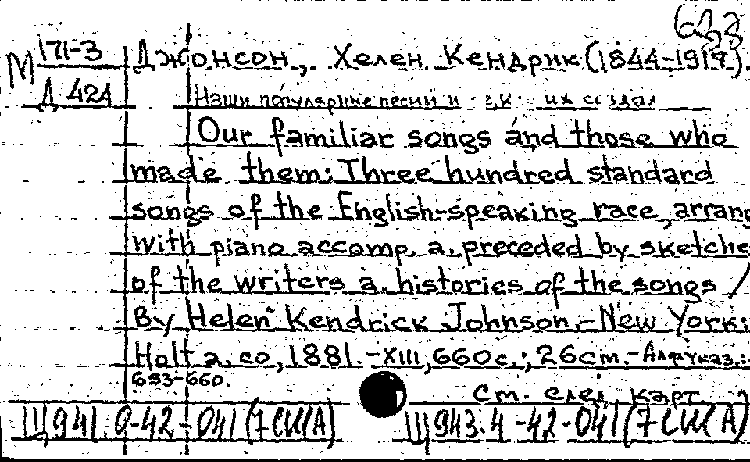 638
М 171-3
Д 424
Джонсон, Хелен Кендрик (1844-1917).
Наши популярные песни и их создал
Our familiar songs and those who
made them: Three hundred standard
songs of the English-speaking race, arran
with piano accomp. a. preceded by sketche
of the writers a. histories of the songs /
By Helen Kendrick Johnson.- New York:
Holt a. co, 1881.-XIII, 660c.; 26cm.- Алф.указ.:
653-660.
См. след. карт.
Щ941.0-42-041(7США) Щ943.4-42-041(7США)